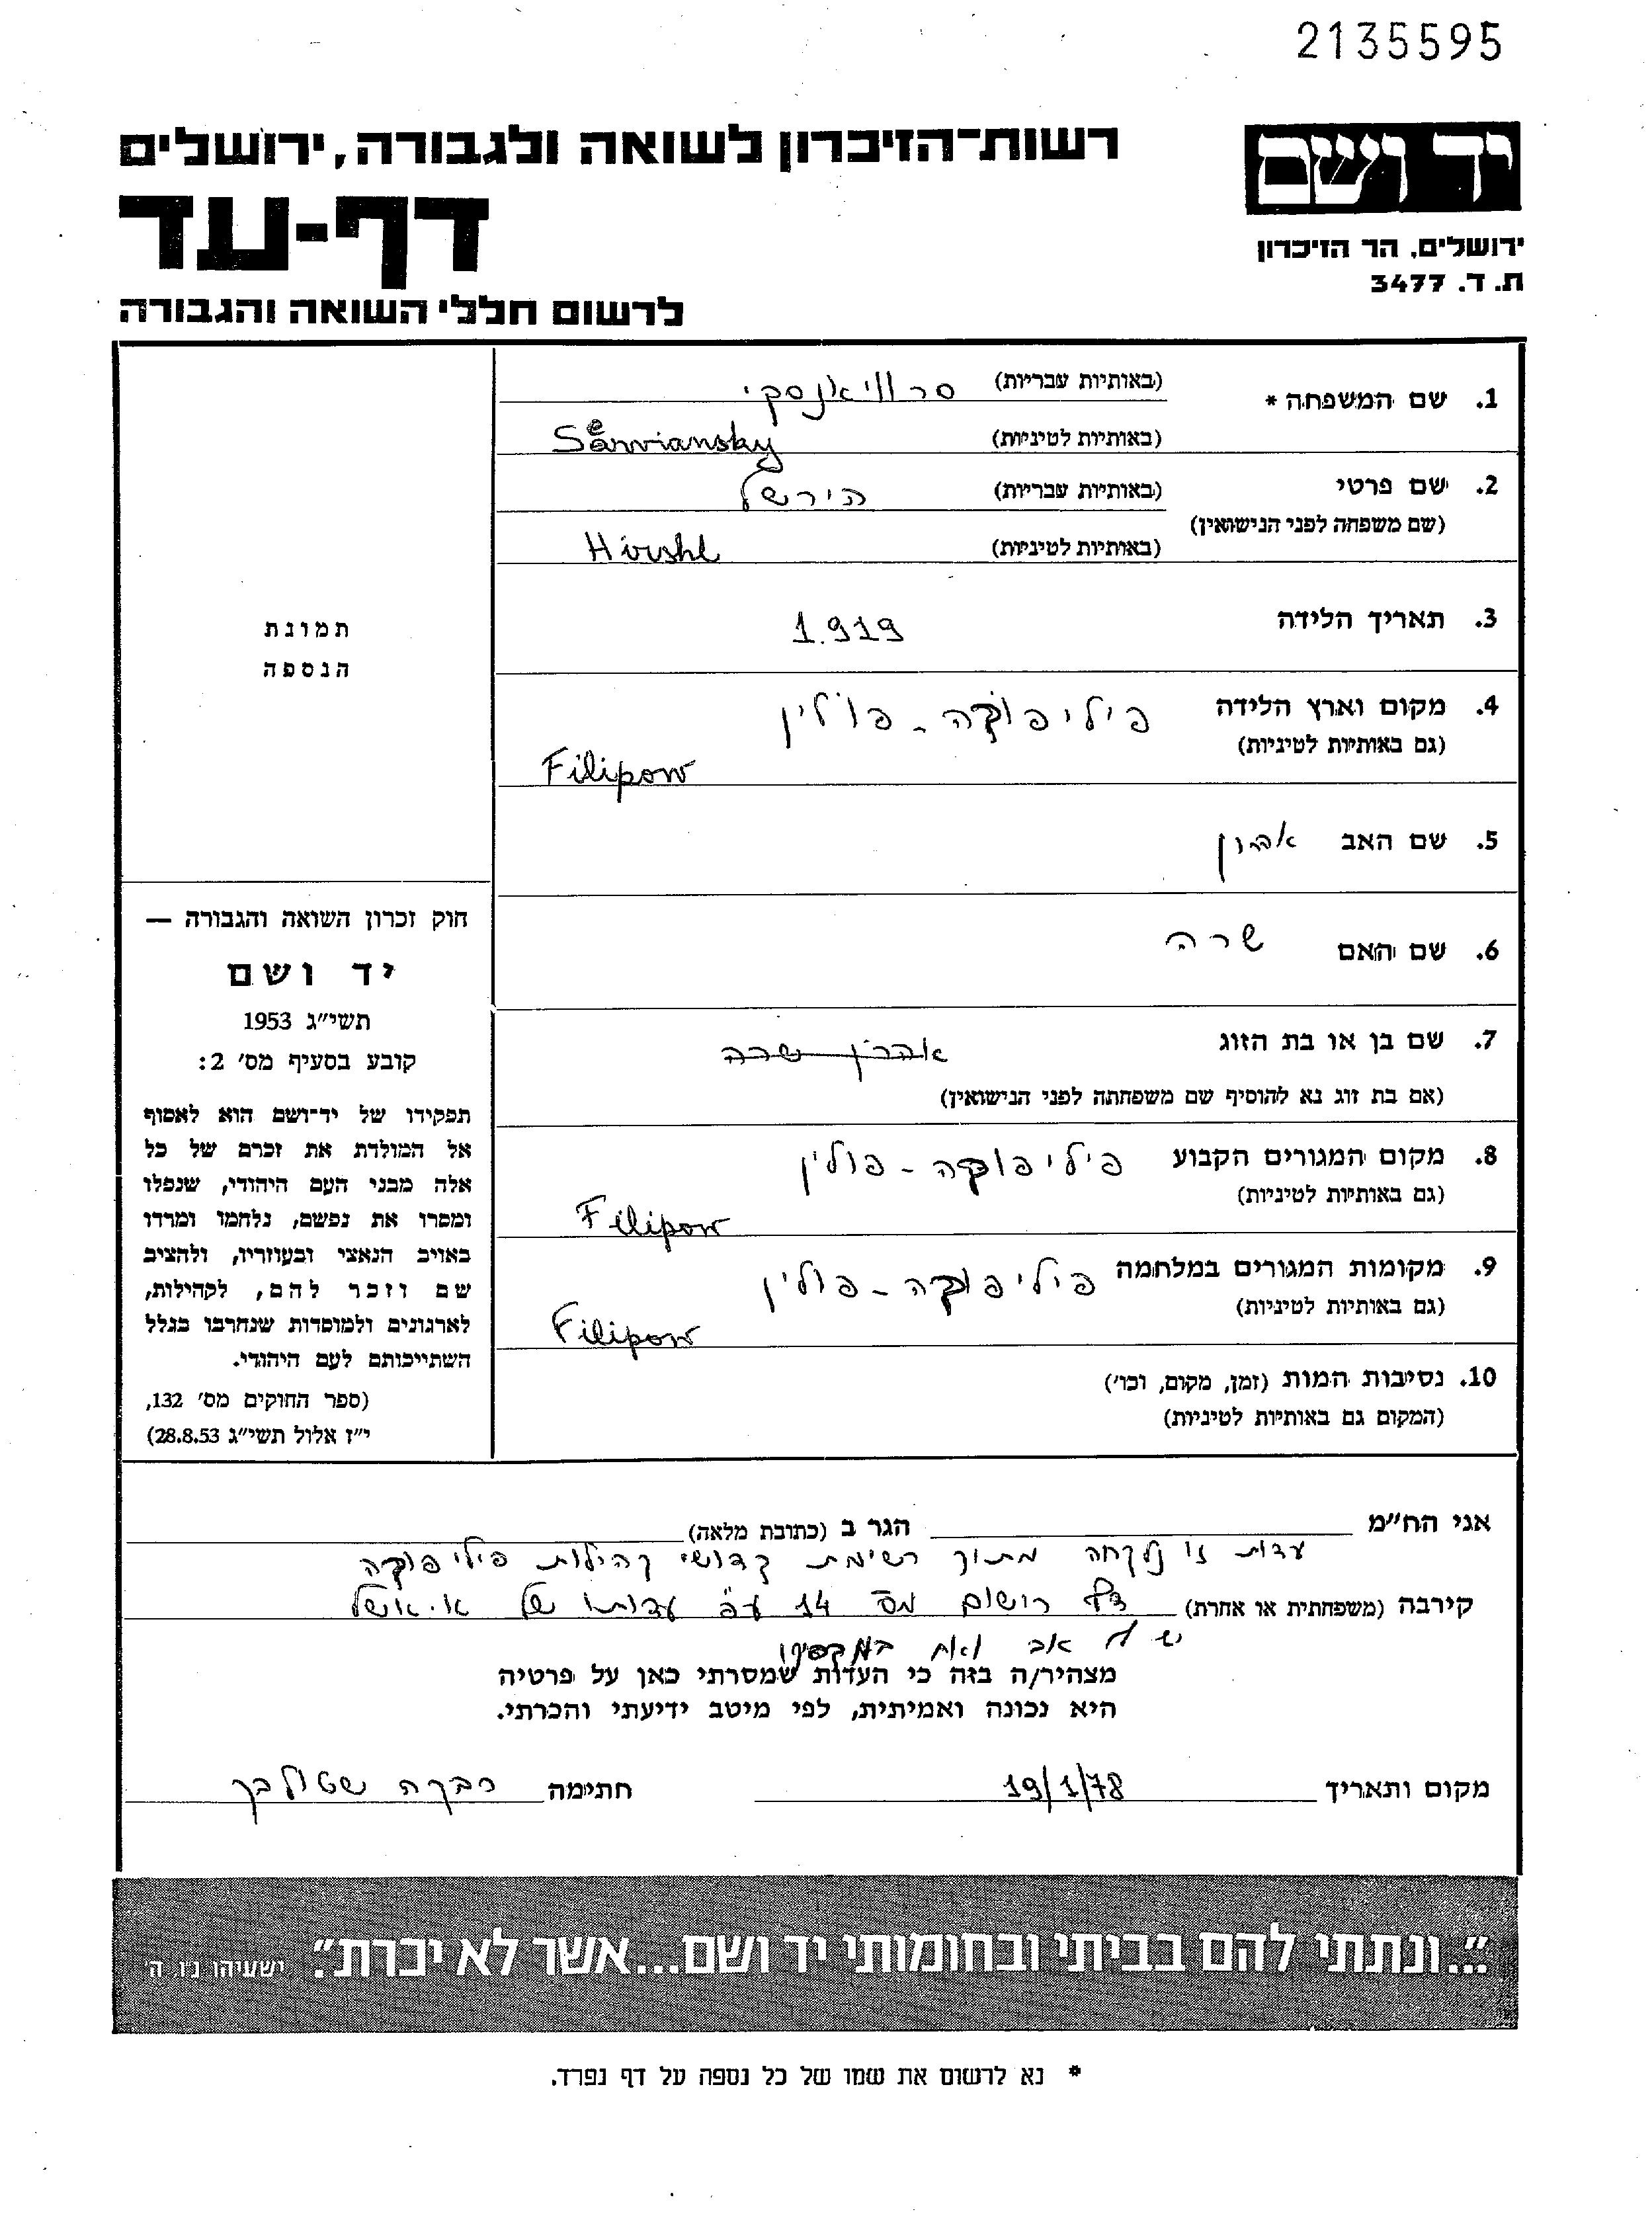 2135595
יד ושם
ירושלים, הר הזיכרון
ת. ד. 3477
רשות־הזיכרון לשואה ולגבורה, ירושלים
דף-עד
לרשום חללי השואה והגבורה
1. שם המשפחה *
(באותיות עבריות) סרוויאנסקי
(באותיות לטיניות) Serwiansky
2. שם פרטי
(שם משפחה לפני הנישואין)
(באותיות עבריות) הירשל
(באותיות לטיניות) Hirshl
3. תאריך הלידה 1.919
4. מקום וארץ הלידה פיליפובקה - פולין
(גם באותיות לטיניות) Filipow
5. שם האב אהרון
6. שם האם שרה
7. שם בן או בת הזוג אהרן שרה
(אם בת זוג נא להוסיף שם משפחתה לפני הנישואין)
8. מקום המגורים הקבוע פיליפובקה - פולין
(גם באותיות לטיניות) Filipow
9. מקומות המגורים במלחמה פיליפובקה - פולין
(גם באותיות לטיניות) Filipow
10. נסיבות המות (זמן, מקום, וכו')
(המקום גם באותיות לטיניות)
תמונת
הנספה
חוק זכרון השואה והגבורה —
יד ושם
תשי"ג 1953
קובע בסעיף מס' 2:
תפקידו של יד־ושם הוא לאסוף
אל המולדת את זכרם של כל
אלה מבני העם היהודי, שנפלו
ומסרו את נפשם, נלחמו ומרדו
באויב הנאצי ובעוזריו, ולהציב
שם וזכר להם, לקהילות,
לארגונים ולמוסדות שנחרבו בגלל
השתייכותם לעם היהודי.
(ספר החוקים מס' 132,
י"ז אלול תשי"ג 28.8.53)
אני הח"מ הגר ב (כתובת מלאה)
עדות זו נלקחה מתוך רשימת קדושי קהילות פיליפובקה
קירבה (משפחתית או אחרת) דף רישום מס 14 עפ עדותו של
יש לו אב ואח במקסיקו
מצהיר/ה בזה כי העדות שמסרתי כאן על פרטיה
היא נכונה ואמיתית, לפי מיטב ידיעתי והכרתי.
מקום ותאריך 19/1/78 חתימה רבקה שטולבך
"...ונתתי להם בביתי ובחומותי יד ושם...אשר לא יכרת". ישעיהו נו, ה'
* נא לרשום את שמו של כל נספה על דף נפרד.